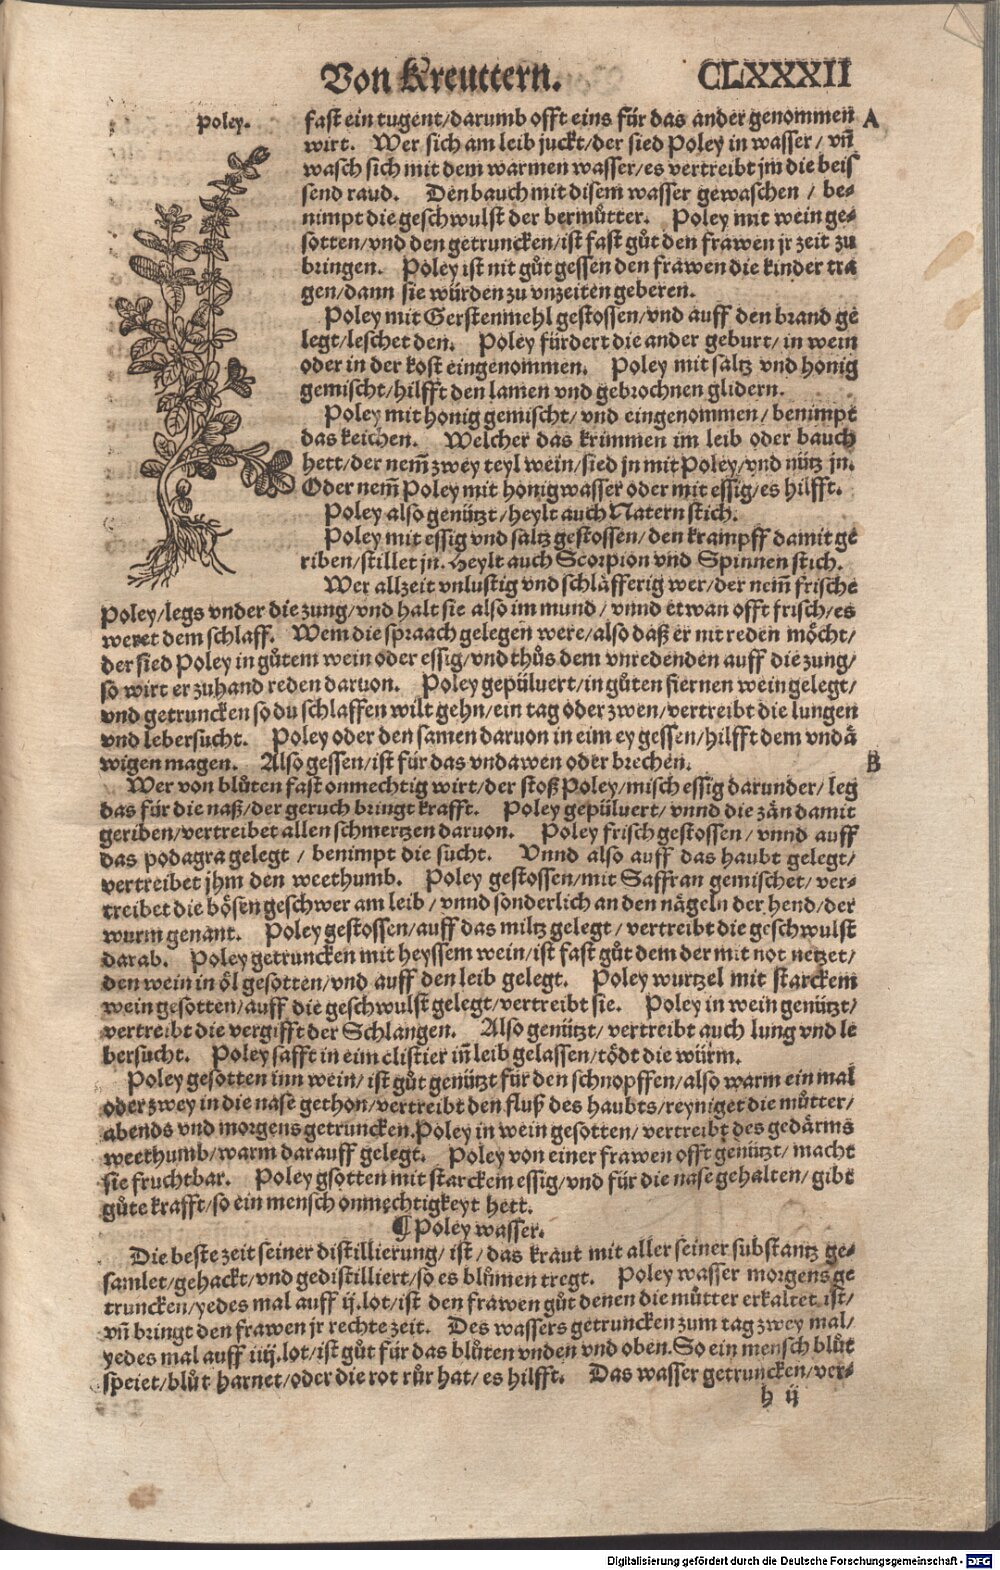 Von Kreuttern. CLXXXII
Poley.
fast ein tugent/darumb offt eins für das ander genommen A
wirt. Wer sich am leib juckt/der sied Poley in wasser/ vñ
wasch sich mit dem warmen wasser/es vertreibt jm die beis
send raud. Den bauch mit disem wasser gewaschen / be-
nimpt die geschwulst der bermůtter. Poley mit wein ge-
sotten/vnd den getruncken/ist fast gůt den frawen jr zeit zu
bringen. Poley ist nit gůt gessen den frawen die kinder tra
gen/dann sie würden zu vnzeiten geberen.
Poley mit Gerstenmehl gestossen/vnd auff den brand ge
legt/leschet den. Poley fürdert die ander geburt/ in wein
oder in der kost eingenommen. Poley mit saltz vnd honig
gemischt/hilfft den lamen vnd gebrochnen glidern.
Poley mit honig gemischt/ vnd eingenommen/ benimpt
das keichen. Welcher das krimmen im leib oder bauch
hett/der nem̃ zwey teyl wein/sied jn mit Poley/vnd nütz jn.
Oder nem̃ Poley mit honigwasser oder mit essig/es hilfft.
Poley also genützt/heylt auch Natern stich.
Poley mit essig vnd saltz gestossen/den krampff damit ge
riben/stillet jn. Heylt auch Scorpion vnd Spinnen stich.
Wer allzeit vnlustig vnd schläfferig wer/der nem̃ frische
Poley/legs vnder die zung/vnd halt sie also im mund/ vnnd etwan offt frisch/es
weret dem schlaff. Wem die spraach gelegen were/also daß er nit reden möcht/
der sied Poley in gůtem wein oder essig/vnd thůs dem vnredenden auff die zung/
so wirt er zuhand reden daruon. Poley gepüluert/in gůten fiernen wein gelegt/
vnd getruncken so du schlaffen wilt gehn/ein tag oder zwen/vertreibt die lungen
vnd lebersucht. Poley oder den samen daruon in eim ey gessen/hilfft dem vndä
wigen magen. Also gessen/ist für das vndawen oder brechen. B
Wer von blůten fast onmechtig wirt/der stoß Poley/misch essig darunder/ leg
das für die naß/der geruch bringt krafft. Poley gepüluert/ vnnd die zän damit
geriben/vertreibet allen schmertzen daruon. Poley frisch gestossen/ vnnd auff
das podagra gelegt / benimpt die sucht. Vnnd also auff das haubt gelegt/
vertreibet jhm den weethumb. Poley gestossen/mit Saffran gemischet/ ver-
treibet die bösen geschwer am leib / vnnd sonderlich an den nägeln der hend/der
wurm genant. Poley gestossen/auff das miltz gelegt / vertreibt die geschwulst
darab. Poley getruncken mit heyssem wein/ist fast gůt dem der mit not netzet/
den wein in öl gesotten/vnd auff den leib gelegt. Poley wurtzel mit starckem
wein gesotten/auff die geschwulst gelegt/vertreibt sie. Poley in wein genützt/
vertreibt die vergifft der Schlangen. Also genützt/ vertreibt auch lung vnd le
bersucht. Poley safft in eim clistier in̄ leib gelassen/tödt die würm.
Poley gesotten inn wein/ ist gůt genützt für den schnopffen/also warm ein mal
oder zwey in die nase gethon/vertreibt den fluß des haubts/reyniget die můtter/
abends vnd morgens getruncken. Poley in wein gesotten/ vertreibt des gedärms
weethumb/warm darauff gelegt. Poley von einer frawen offt genützt/ macht
sie fruchtbar. Poley gsotten mit starckem essig/vnd für die nase gehalten/ gibt
gůte krafft/so ein mensch onmechtigkeyt hett.
¶ Poley wasser.
Die beste zeit seiner distillierung/ ist / das kraut mit aller seiner substantz ge-
samlet/gehackt/vnd gedistilliert/so es blůmen tregt. Poley wasser morgens ge
truncken/yedes mal auff ij.lot/ist den frawen gůt denen die můtter erkaltet ist/
vñ bringt den frawen jr rechte zeit. Des wassers getruncken zum tag zwey mal/
yedes mal auff iiij.lot/ist gůt für das blůten vnden vnd oben. So ein mensch blůt
speiet/blůt harnet/oder die rot růr hat/ es hilfft. Das wasser getruncken/ver-
h ij
Digitalisierung gefördert durch die Deutsche Forschungsgemeinschaft - DFG